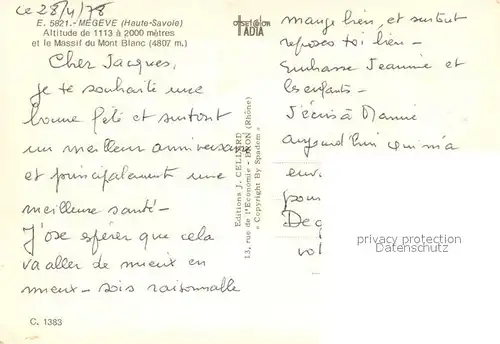 ce 28/4/78
E. 5821. - MEGEVE (Haute-Savoie)
Altitude de 1113 à 2000 mètres
et le Massif du Mont Blanc (4807 m.)
Cher Jacques,
je te souhaite une
bonne fête et surtout
un meilleur anniversaire
et principalement une
meilleure santé -
J'ose espérer que cela
va aller de mieux en
mieux - sois raisonnable
C. 1383
Editions J. CELLARD
13, rue de l'Economie - BRON (Rhône)
« Copyright By Spadem »
mange bien, et surtout
reposes toi bien -
Embrasse Jeannie et
les enfants -
J'écris à Mamie
aujourd'hui qui m'a
env.
pour
De
vol
privacy protection
Datenschutz